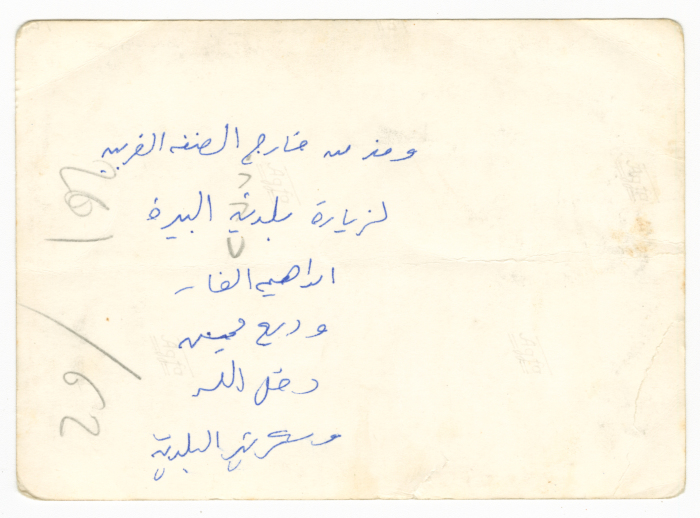 وفد من خارج الضفة الغربية
لزيارة بلدية البيرة
ابراهيم الفار
وديع
دخل الله
وسكرتير البلدية